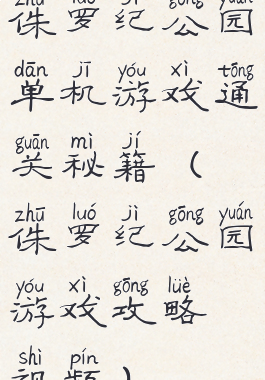 zhū luó jì gōng yuán
侏罗纪公园
dān jī yóu xì tōng
单机游戏通
guān mì jí
关秘籍（
zhū luó jì gōng yuán
侏罗纪公园
yóu xì gōng lüè
游戏攻略
shì pín
视频）